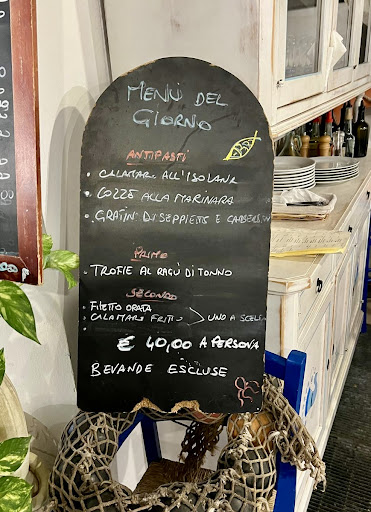 MENÙ DEL
GIORNO
ANTIPASTI
• CALAMARI ALL'ISOLANA
• COZZE ALLA MARINARA
• GRATIN DI SEPPIETTE E
PRIMO
• TROFIE AL RAGÙ DI TONNO
SECONDO
• FILETTO ORATA
• CALAMARO FRITTO > UNO A SCELTA
€ 40,00 A PERSONA
BEVANDE ESCLUSE